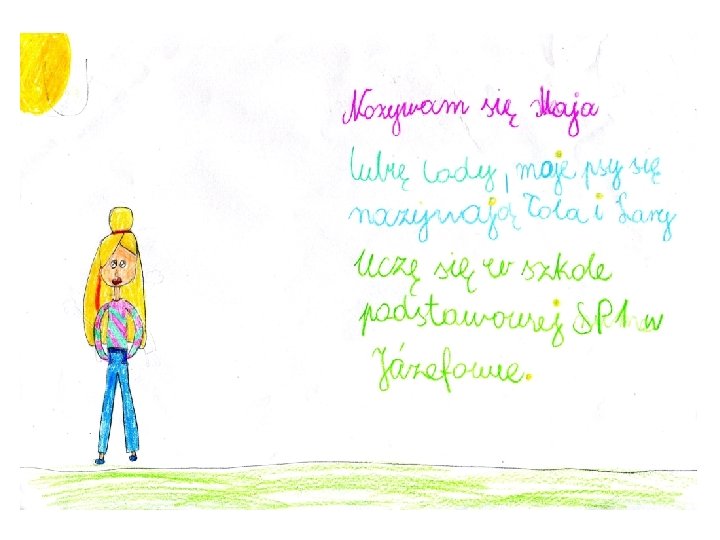 Nazywam się Maja
lubię lody, moje psy się
nazywają Tola i Lary
Uczę się w szkole
podstawowej SP1 w
Józefowie.